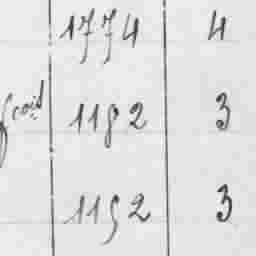 1774 4
froid 1182 3
1192 3